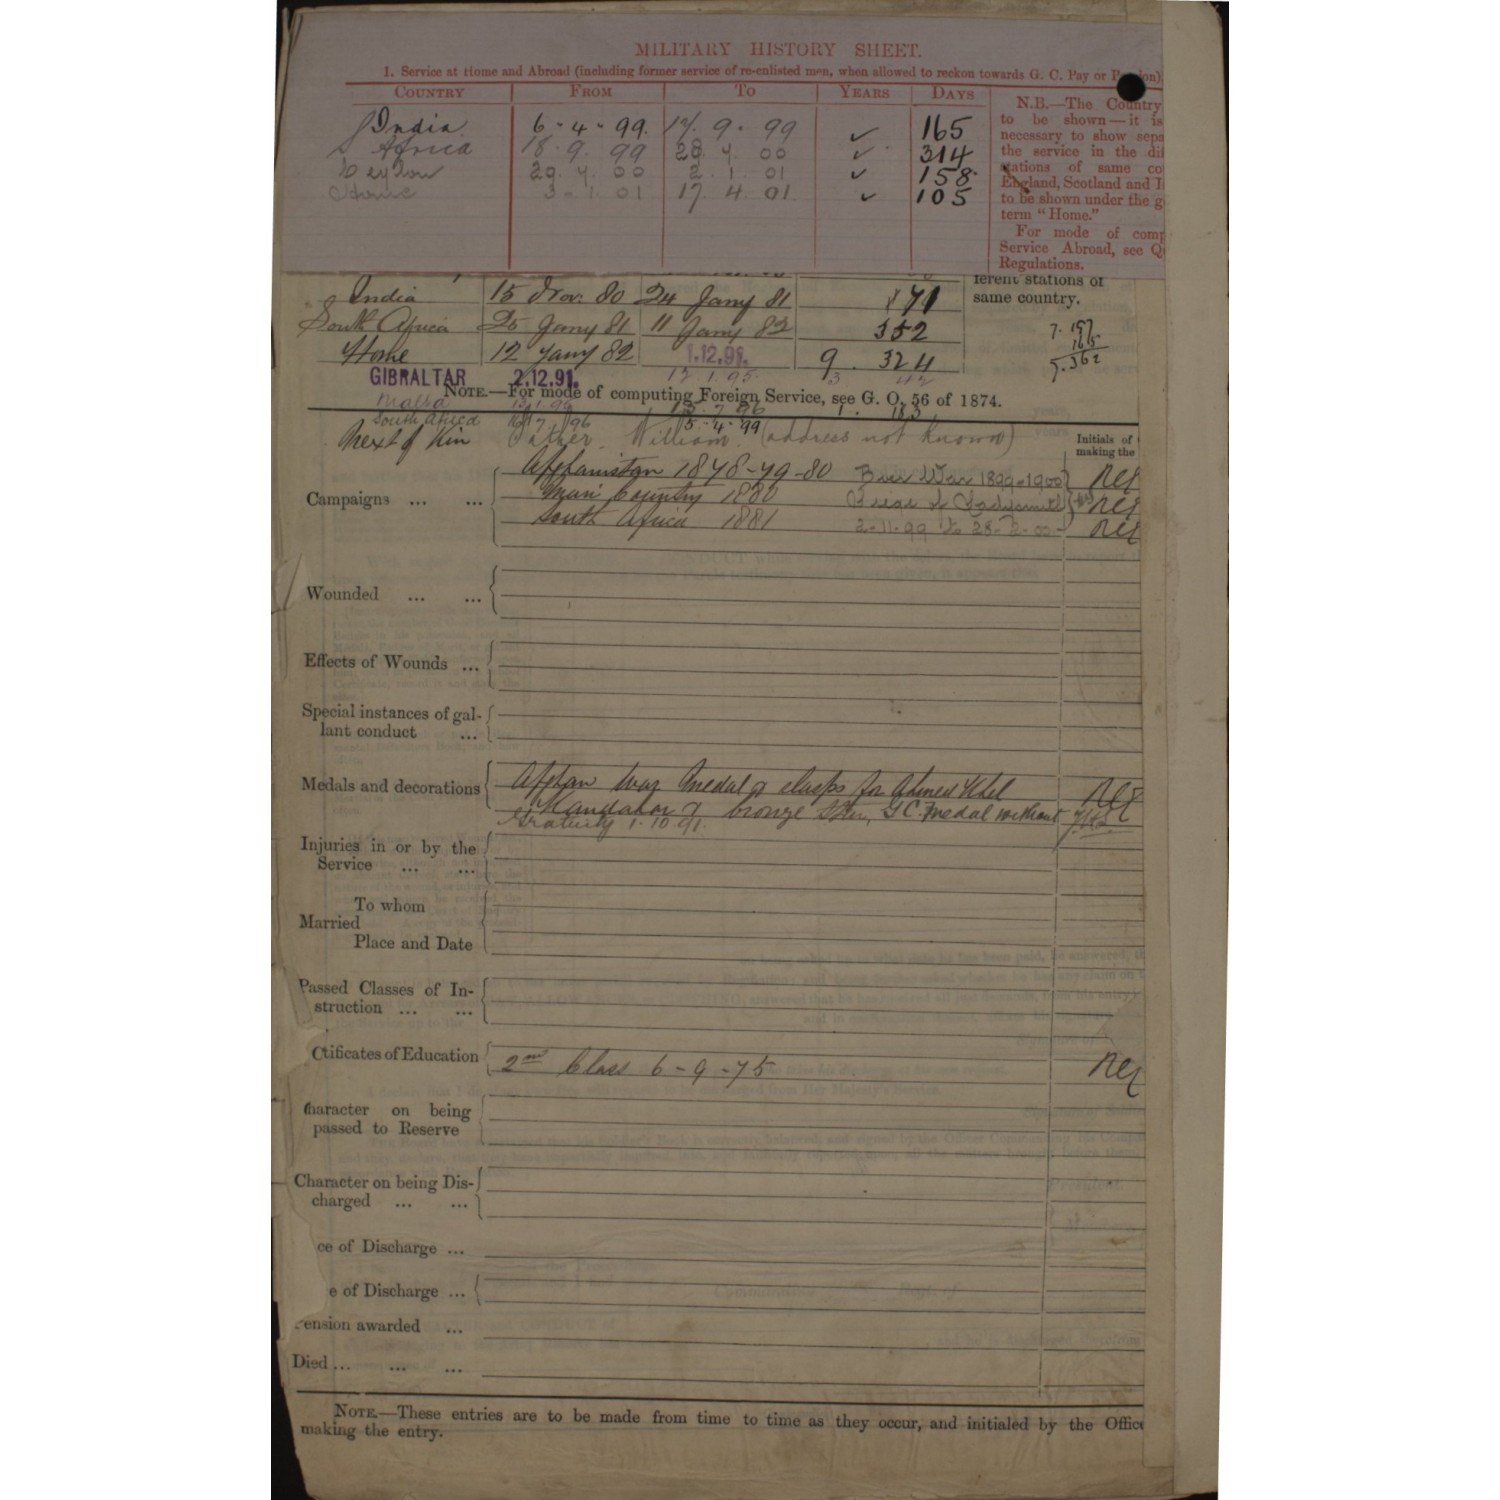 MILITARY HISTORY SHEET.
1. Service at Home and Abroad (including former service of re-enlisted men, when allowed to reckon towards G. C. Pay or P on)
COUNTRY FROM TO YEARS DAYS
N.B.—The Country
to be shown—it is
necessary to show sepa
the service in the dif
stations of same co
England, Scotland and I
to be shown under the g
term "Home."
For mode of comp
Service Abroad, see Q
Regulations.
India 6-4-99. 17. 9. 99 ✓ 165
S Africa 18. 9. 99 28. 7. 00 ✓ 314
Ceylon 29. 7. 00 2. 1. 01 ✓ 158
Home 3-1.01 17. 4. 01 ✓ 105
ferent stations of
same country.
India 15 Nov. 80 24 Jany 81 71
South Africa 25 Jany 81 11 Jany 82 352
Home 12 Jany 82 1.12.91. 9. 324
7. 197
165
7. 362
GIBRALTAR 2.12.91. 12 1. 95. 3 42
NOTE.—For mode of computing Foreign Service, see G. O. 56 of 1874.
Malta 13.1.95 15-7-96 1. 183
South Africa 16 7. 96 5-4-99
Next of Kin Father. William. (address not known)
Initials of
making the
Campaigns ... ...
Afghanistan 1878-79-80 Boer War 1899-1900
Country 1880 Siege of Ladysmith
South Africa 1881 2-11-99 to 28-2-00
Wounded ... ...
Effects of Wounds ...
Special instances of gal-
lant conduct ...
Medals and decorations
Afghan War Medal & clasps for Ahmed Khel
Kandahar & bronze Star, G C. medal without
gratuity 1-10-91.
Injuries in or by the
Service ... ...
To whom
Married
Place and Date
Passed Classes of In-
struction ... ...
tificates of Education 2nd Class 6-9-75
Character on being
passed to Reserve
Character on being Dis-
charged ... ...
ce of Discharge ...
e of Discharge ...
ension awarded ...
Died ... ... ...
NOTE.—These entries are to be made from time to time as they occur, and initialed by the Office
making the entry.